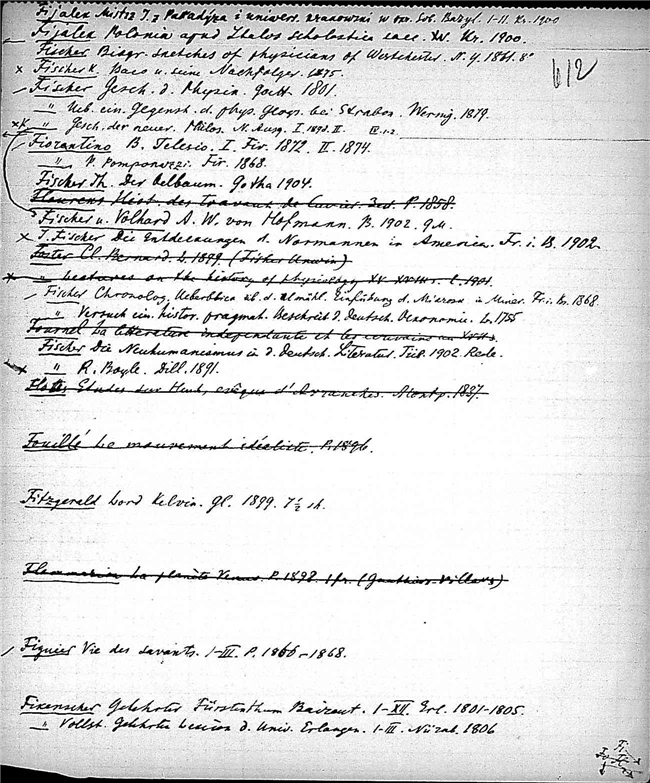 Fijałek Mistrz J. z Paradyża i uniwers. krakowski w okr. Sob. Bazyl. I-II. Kr. 1900
Fijałek Polonia apud Italos scholastica saec. XV. Kr. 1900.
Fischer Biogr. sketches of physicians of Westchester. N.Y. 1861. 8°
612
x Fischer K. Baco u. seine Nachfolger. 1875.
Fischer Gesch. d. Physik. Gött. 1801.
" Ueb. ein. Gegenst. d. phys. Geogr. bei Strabo. Wernig. 1879.
" Gesch. der neuer. Philos. N. Ausg. I. 1898. II. IV. 1-2
Fiorentino B. Telesio. I. Fir. 1872. II. 1874.
" P. Pomponazzi. Fir. 1868.
Fischer Th. Der Oelbaum. Gotha 1904.
Flourens Hist. des travaux de Cuvier. 3 ed. P. 1858.
Fischer u. Volhard A. W. von Hofmann. B. 1902. 9 M.
x J. Fischer Die Entdeckungen d. Normannen in America. Fr. i. B. 1902
Foster Cl. Bernard. L. 1899 (Fisher Unwin)
x " Lectures on the history of physiology XV-XVIII s. C. 1901.
Fischer Chronolog. Ueberblick üb. d. allmähl. Einführung d. Microsc. in Miner. Fr. i. Br. 1868.
" Versuch ein. histor. pragmat. Beschreib. d. deutsch. Oeconomie. L. 1755
Fournel La littérature indépendante et les écrivains au XVII s.
Fischer Die Neuhumanismus in d. deutsch. Literatur. Tüb. 1902. Rede.
" R. Boyle. Dill. 1891.
Etudes sur Huet, evêque d'Avranches. Montp. 1857.
Fouillé Le mouvement idéaliste. P. 1896.
Fitzgerald Lord Kelvin. Gl. 1899. 7½ sh.
Flammarion La planète Venus. P. 1892 1 fr. (Gauthier-Villars)
Figuier Vie des savants. I-III. P. 1866-1868.
Fikenscher Gelehrtes Fürstenthum Baireut. I-XII. Erl. 1801-1805.
" Vollst. Gelehrten Lexicon d. Univ. Erlangen. I-III. Nürnb. 1806